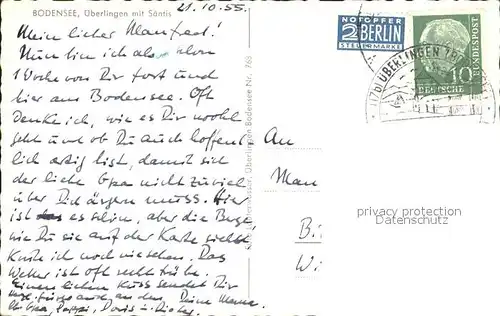 BODENSEE, Überlingen mit Säntis
21.10.55.
Mein lieber Manfred!
Nun bin ich also schon
1 Woche von Dir fort und
hier am Bodensee. Oft
denke ich, wie es Dir wohl
geht und ob Du auch hoffent-
lich artig bist, damit sich
der liebe Opa nicht zuviel
über Dich ärgern muss. Hier
ist es schön, aber die Berge
wie Du sie auf der Karte siehst,
konnte ich noch nie sehen. Das
Wetter ist oft recht trübe.
Einen lieben Kuss sendet Dir
Deine Mama.
Opa, Pappi, Doris u.
Überlingen Bodensee Nr. 768
NOTOPFER
2 BERLIN
STEUERMARKE
ÜBERLINGEN
10
DEUTSCHE
BUNDESPOST
An
Man
B
Wi
privacy protection
Datenschutz